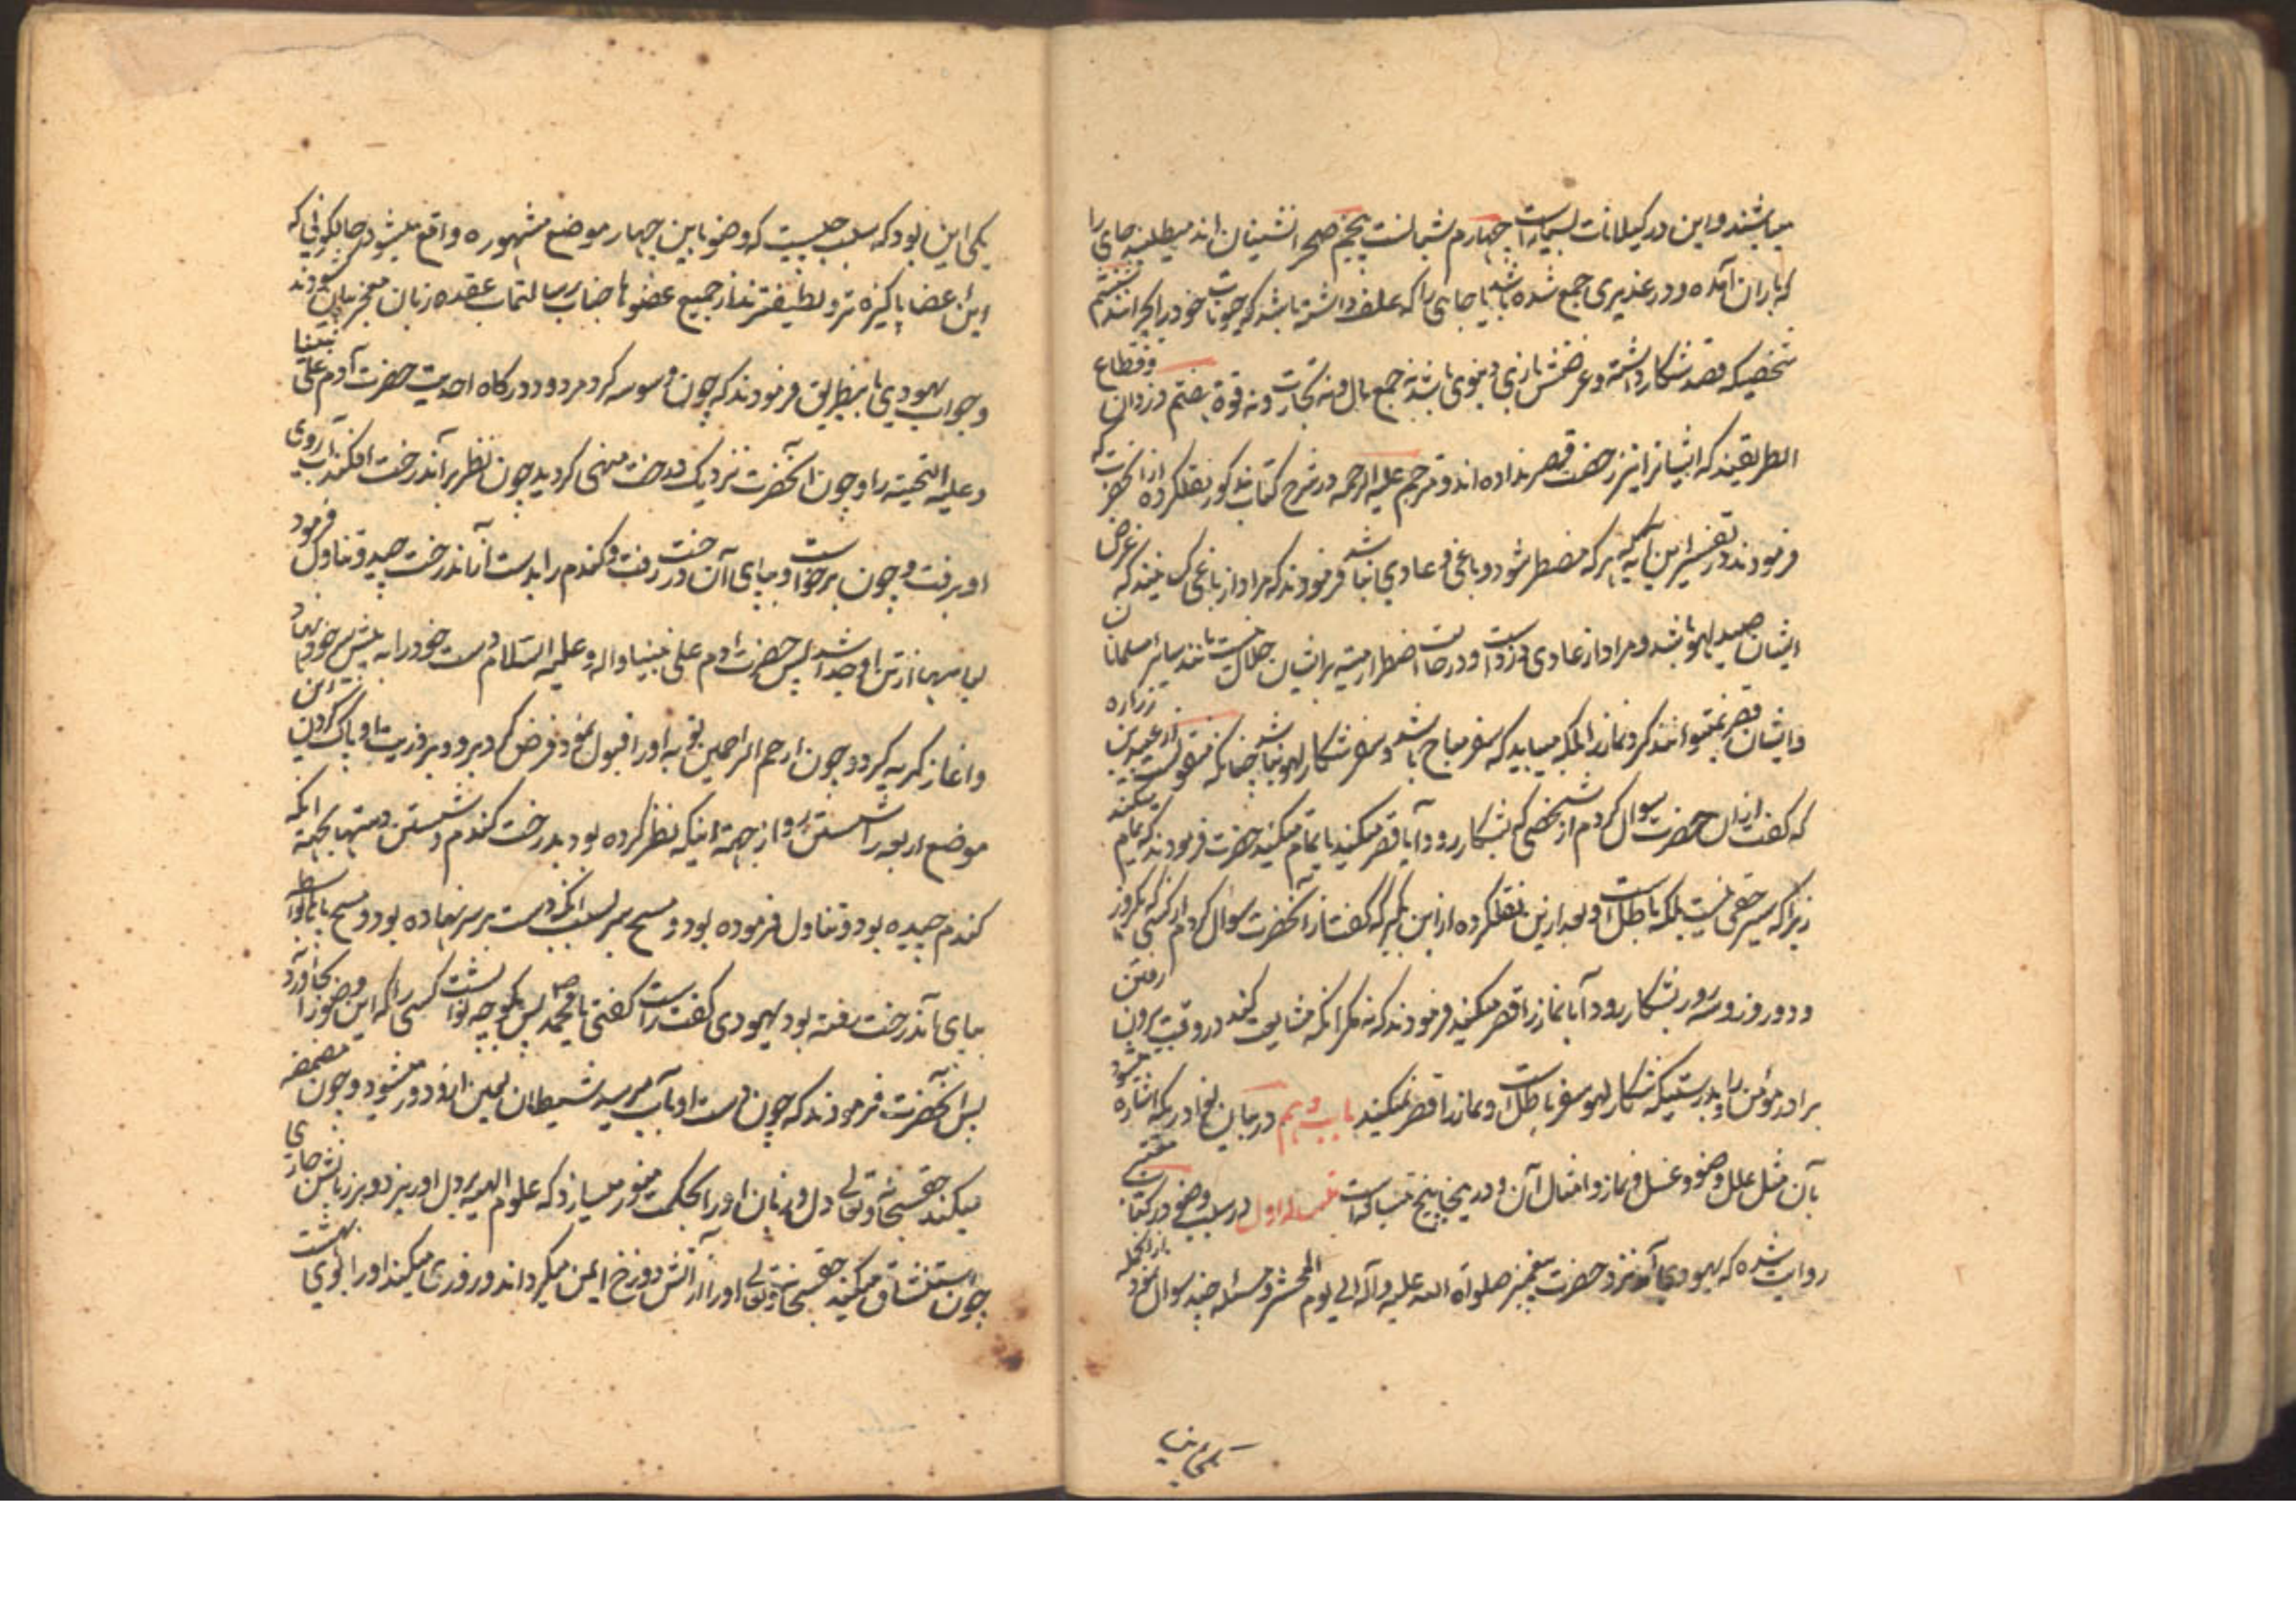 میباشند و این در کیلانات بسیار است چهارم شبانست پنجم صحرا نشینان اند میطلبند جای را
که باران آمده و در غدیری جمع شده باشد یا جای را که علف داشته باشد که حیوانات خود را بچرانند ششم
شخصیکه قصد شکار داشته و غرضش بازی دنیوی باشد نه جمع مال و نه تجارت و نه قوة هفتم دزدان و قطاع
الطریقند که ایشانرا نیز رخصت قصر نداده اند و مترجم علیه الرحمه در شرح کتاب مذکور نقلکرده از انحضرت که
فرمودند در تفسیر این آیه که هر که مضطر شود و باغی و عادی نباشد فرمودند که مراد از باغی کسانیند که غرض
ایشان صید لهو باشد و مراد از عادی دزد است و در حالت اضطرار میته بر ایشان حلال نیست مانند سایر مسلمانان
و ایشان قصر نمیتوانند کرد نماز را بلکه میباید که سفر مباح باشد و سفر شکار لهو نباشد چنانکه منقولست از عبید بن زراره
که گفت از ان حضرت سوال کردم از شخصی که بشکار رود آیا قصر میکند یا تمام میکند حضرت فرمودند که تمام میکند
زیرا که سیر حقی نیست بلکه باطل است و بعد ازین نقلکرده از ابن بکیر که گفت از آنحضرت سوال کردم از کسی که یکروز
و دو روز و سه روز بشکار رود آیا نماز را قصر میکند فرمودند که نه مکر انکه مشایعت کند در وقت بیرون رفتن
برادر مؤمن را و بدرستیکه شکار لهو سفر باطل است و نماز را قصر نمیکند باب دهم در بیان انچه در یکه اشاره میشود
بآن مثل علل وضو و غسل و نماز و امثال آن و در اینجا پنج مسئله است مسئله اول در سبب وضو در کتاب معتبر
روایت شده که یهودی آمد نزد حضرت پیغمبر صلواة الله علیه و آله الی یوم المحشر و مسئله چند سوال نمود از انجمله
یکی این
یکی این بود که سبب چیست که وضو باین چهار موضع مشهوره واقع میشود حالکونی که
این عضا پاکیزه تر و لطیفترند از جمیع عضوها جناب رسالتماب عقده زبان معجز بیان کشودند
و جواب یهودی باینطریق فرمودند که چون وسوسه کرد مردود درکاه احدیت حضرت آدم علی نبینا
و علیه التحیته را و چون انحضرت نزدیک درخت منهی کردید چون نظر بر آندرخت افکند آب روی
او برفت و چون برخواست و بپای آن درخت رفت و کندم را بدست از آندرخت چید و تناول فرمود
لباسها از تن او جدا شد پس حضرت آدم علی نبینا و اله و علیه السلام دست خود را به پیش سر خود نهاد
و اغاز کریه کرد و چون ارحم الراحمین توبه او را قبول نمود فرض کرد بر او و بر ذریت او پاک کردن این
موضع اربعه را شستن رو از جهة اینکه نظر کرده بود بدرخت کندم و شستن دستها بجهة انکه
کندم چیده بود و تناول فرموده بود و مسح سر بسبب انکه دست بر سر نهاده بود و مسح پا بواسطه
بپای آندرخت رفته بود یهودی گفت راست گفتی یا محمد ص پس بگو چه ثوابست کسی را که این وضو را بجا آورد
پس آنحضرت فرمودند که چون دست او بآب میرسد شیطان لعین از او دور میشود و چون مضمضه
میکند حقسبحانه و تعالی دل و زبان او را بحکمت منور میسازد که علوم الهیه بر دل او ریزد و بر زبانش جاری
چون استنشاق میکند حقسبحانه و تعالی او را از آتش دوزخ ایمن میکرداند و روزی میکند او را بوی بهشت